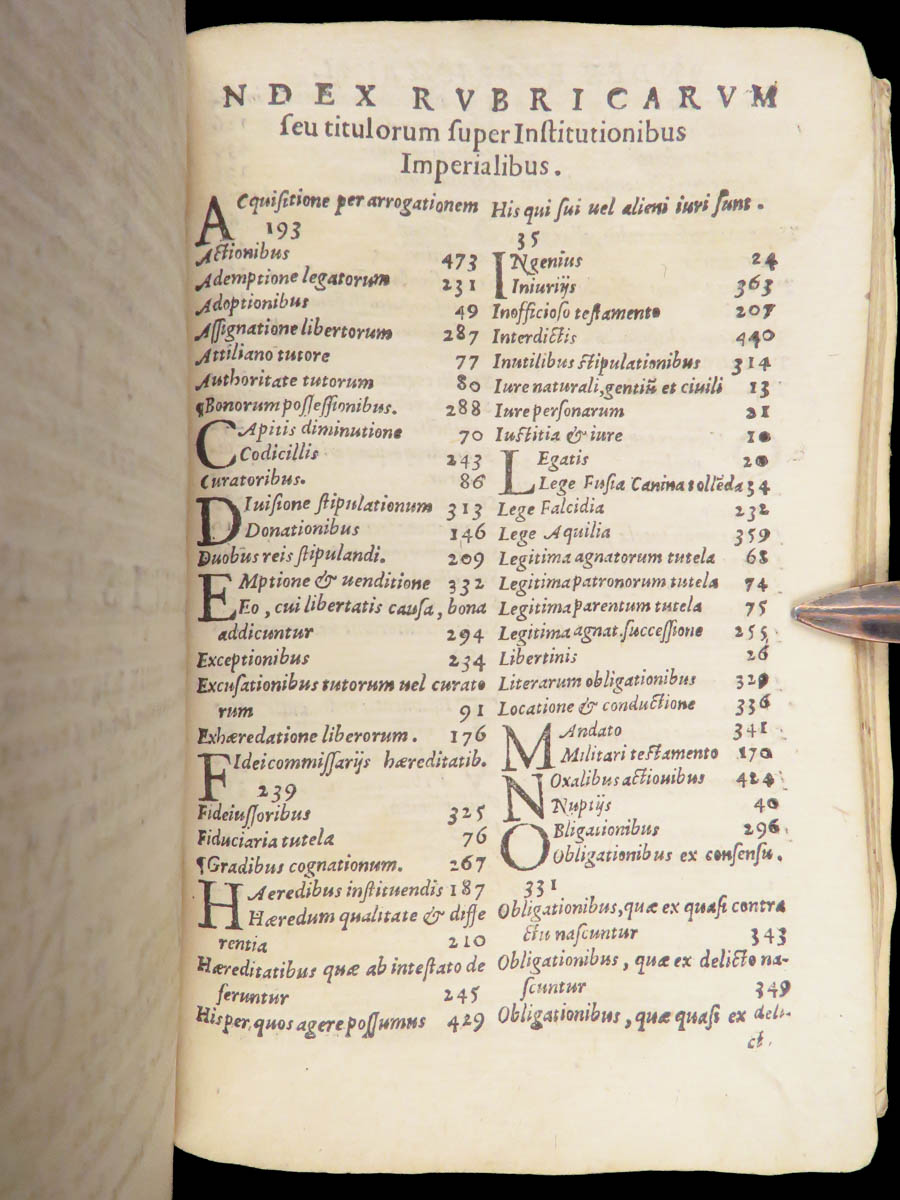 NDEX RVBRICARVM
seu titulorum super Institutionibus
Imperialibus.
ACquisitione per arrogationem
193
Actionibus 473
Ademptione legatorum 231
Adoptionibus 49
Assignatione libertorum 287
Attiliano tutore 77
Authoritate tutorum 80
¶Bonorum possessionibus. 288
CApitis diminutione 70
Codicillis 243
Curatoribus. 86
DIuisione stipulationum 313
Donationibus 146
Duobus reis stipulandi. 209
EMptione & uenditione 332
Eo, cui libertatis causa, bona
addicuntur 294
Exceptionibus 234
Excusationibus tutorum uel curato
rum 91
Exhæredatione liberorum. 176
FIdeicommissarijs hæreditatib.
239
Fideiussoribus 325
Fiduciaria tutela 76
¶Gradibus cognationum. 267
HAeredibus instituendis 187
Hæredum qualitate & diffe
rentia 210
Hæreditatibus quæ ab intestato de
feruntur 245
His per, quos agere possumus 429
His qui sui uel alieni iuri sunt.
35
INgenius 24
Iniurijs 363
Inofficioso testamento 207
Interdictis 440
Inutilibus stipulationibus 314
Iure naturali, gentiũ et ciuili 13
Iure personarum 21
Iustitia & iure 10
LEgatis 20
Lege Fusia Canina tollẽda 34
Lege Falcidia 232
Lege Aquilia 359
Legitima agnatorum tutela 68
Legitima patronorum tutela 74
Legitima parentum tutela 75
Legitima agnat. successione 255
Libertinis 26
Literarum obligationibus 329
Locatione & conductione 336
MAndato 341
Militari testamento 170
NOxalibus actionibus 424
Nuptijs 40
OBligationibus 296
Obligationibus ex consensu.
331
Obligationibus, quæ ex quasi contra
ctu nascuntur 343
Obligationibus, quæ ex delicto na-
scuntur 349
Obligationibus, quæ quasi ex deli-
ct.